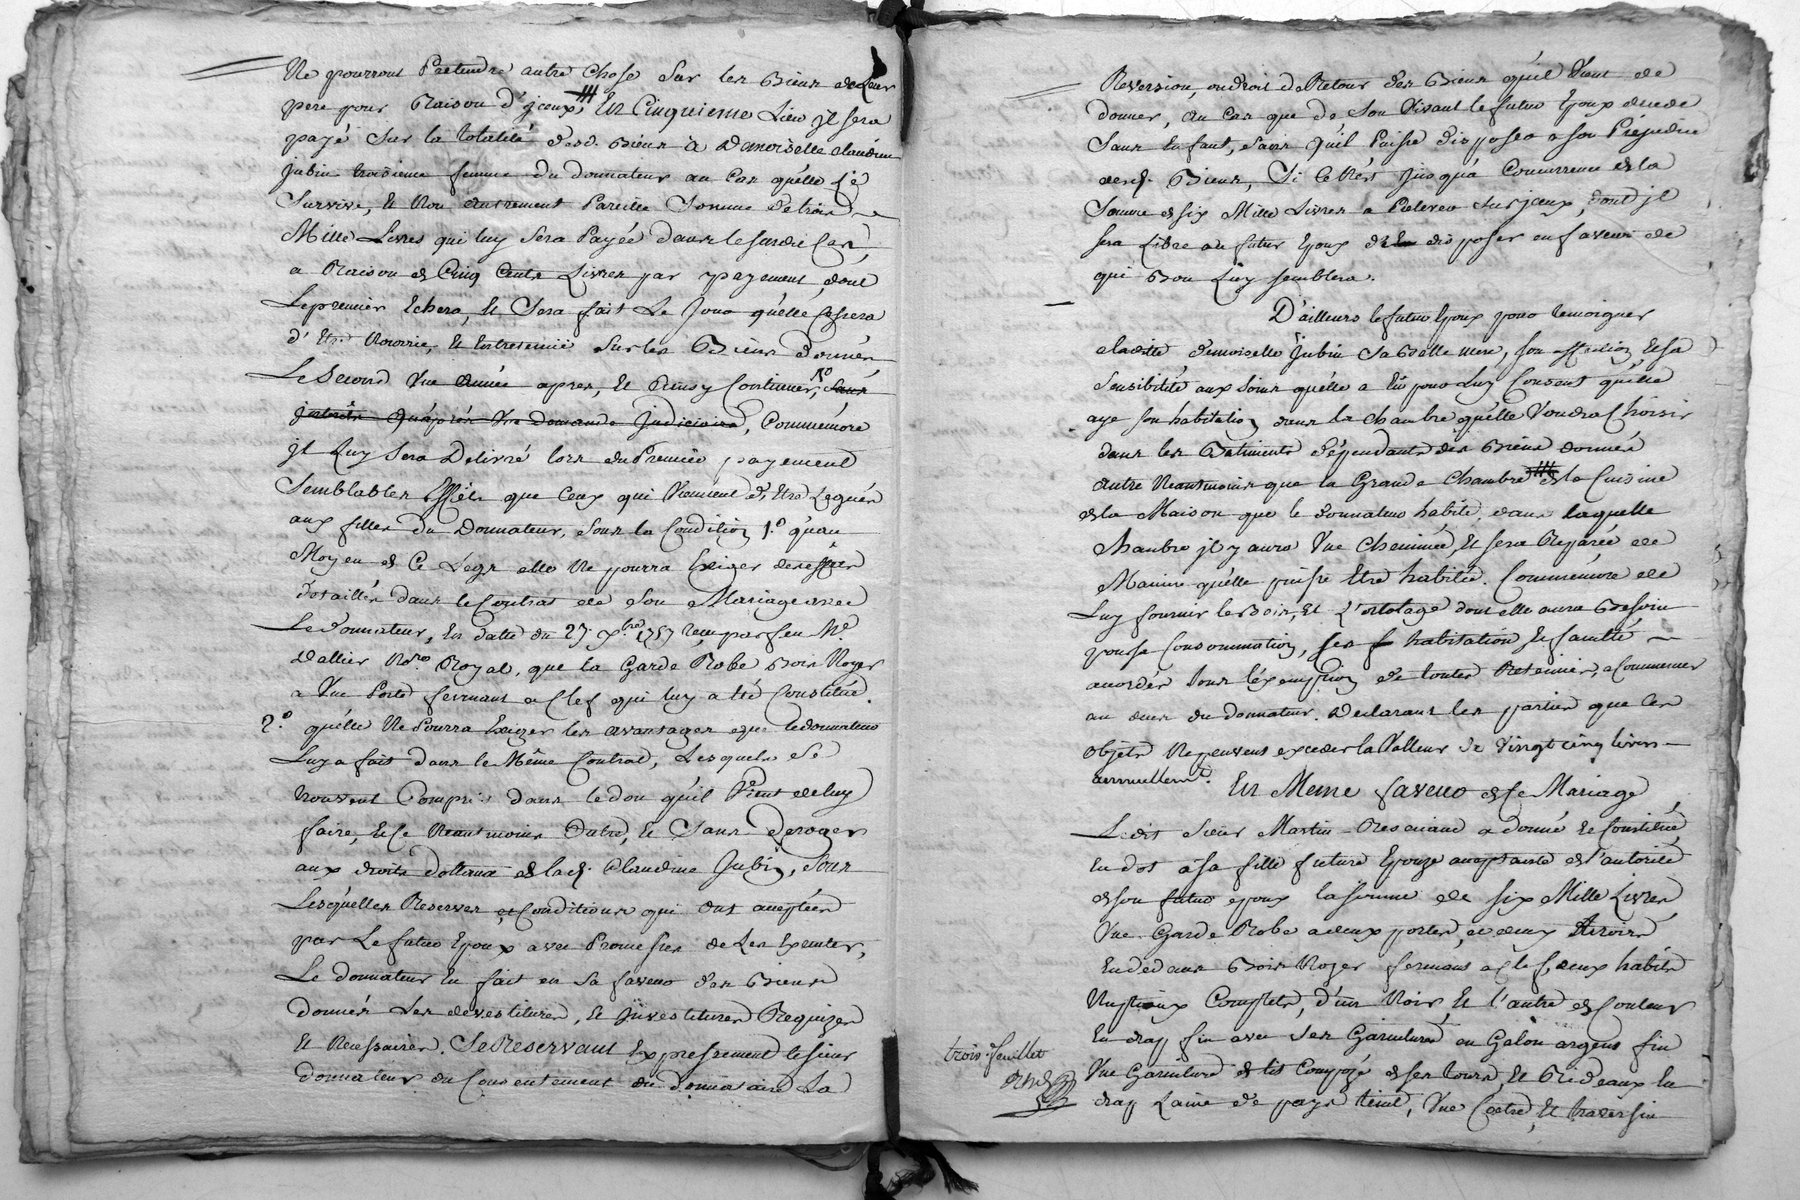 Ne pourront Pretendre autre Chose Sur les Biens de Leur
pere pour Raison d'jceux, En Cinquieme Lieu jl sera
payé Sur la totalité desd. Biens à Demoiselle claudine
jubin troisieme femme du donnateur au Cas qu'elle le
Survive, & Non autrement Pareille Somme de trois
Mille Livres qui luy Sera Payée dans le susdit Cas
a Raison de Cinq Cents Livres par payement, dont
Le premier Echera, & Sera fait Le Jour qu'elle Cessera
d'Etre Nourrie, & Entretenüe Sur les Biens donnés
Le Second Une année apres, & Ainsy Continuer, sans
jnterêts Qu'après Une demande Judiciaire, Commémore
jl Luy Sera Delivré lors du Premier payement
Semblables Effets que Ceux qui Viennent d'Etre Legués
aux filles du Donnateur, Sous la Condition 1.º qu'au
Moyen de Ce Legs elle Ne pourra Exiger des effets
détaillés dans le Contrat de Son Mariage avec
Le donnateur, En datte du 27. Xbre 1757 reçu par feu Me.
Dallier Nre Royal, que la Garde Robe Bois Noyer
a Une Porte fermant a Clef qui luy a été Constitué.
2.º qu'elle Ne Pourra Exiger les avantages que le donnateur
Luy a fait dans le Même Contrat, Lesquels Se
trouvent Compris dans le don qu'il Vient de luy
faire, & Ce Neantmoins Outre, & Sans deroger
aux droits dottaux de lad. Claudine Jubin, Sous
Lesquelles Reserves & Conditions qui Ont acceptées
par Le futur Epoux avec Promesses de Les Executer,
Le donnateur En fait en Sa faveur des Biens
donnés Les devestitures, & jnvestitures Requizes
& Necessaires. Se Reservant Expressement le sieur
donnateur du Consentement du donnataire La
Reversion, ou droit de Retour des Biens qu'il Vient de
donner, Au Cas que de Son Vivant le futur Epoux decede
Sans Enfant, Sans Qu'il Puisse disposer a son Préjudice
desd. Biens, Si Ce N'est jusqu'à Concurrence de la
Somme de Six Mille Livres a Prelever sur jceux, dont jl
Sera Libre au futur Epoux de disposer en faveur de
qui Bon Luy semblera.
D'ailleurs le futur Epoux pour temoigner
a ladite demoiselle Jubin Sa Belle mere, Son affection & sa
Sensibilité aux Soins qu'elle a Eû pour Luy Consent qu'elle
aye Son habitation dans la Chambre qu'elle Voudra Choisir
dans les Batiments dependants des Biens donnés
autre Neantmoins que la Grande Chambre & la Cuisine
de la Maison que le donnateur habite, dans laquelle
Chambre jl y aura Une Cheminée, & sera Reparée de
Maniere qu'elle puisse Etre habitée. Commémore de
Luy fournir le Bois, & L'ortolage dont elle aura Besoin
pour sa Consommation, habitation & faculté
accordés Sous l'exemption de toutes Retenües, a Commencer
au deces du donnateur. Declarant les parties que Ces
objets Ne peuvent exceder la Valleur de Vingt cinq livres
annuellemt. En Meme faveur de Ce Mariage
Ledit Sieur Martin a donné & Constitué
En dot à sa fille future Epouze acceptante de l'autorité
de son futur epoux la somme de Six Mille Livres
Une Garde Robe a deux portes, & deux tiroirs
En dedans Bois Noyer fermant a Clef, deux habits
Nuptiaux Complets, d'un Noir, & l'autre de Couleur
En drap fin avec Ses Garnitures en Galon argent fin
Une Garniture de lit Composé de ses tours, & Rideaux En
drap Laine de pays teint, Une Coetre, & traversin
trois. feuillet